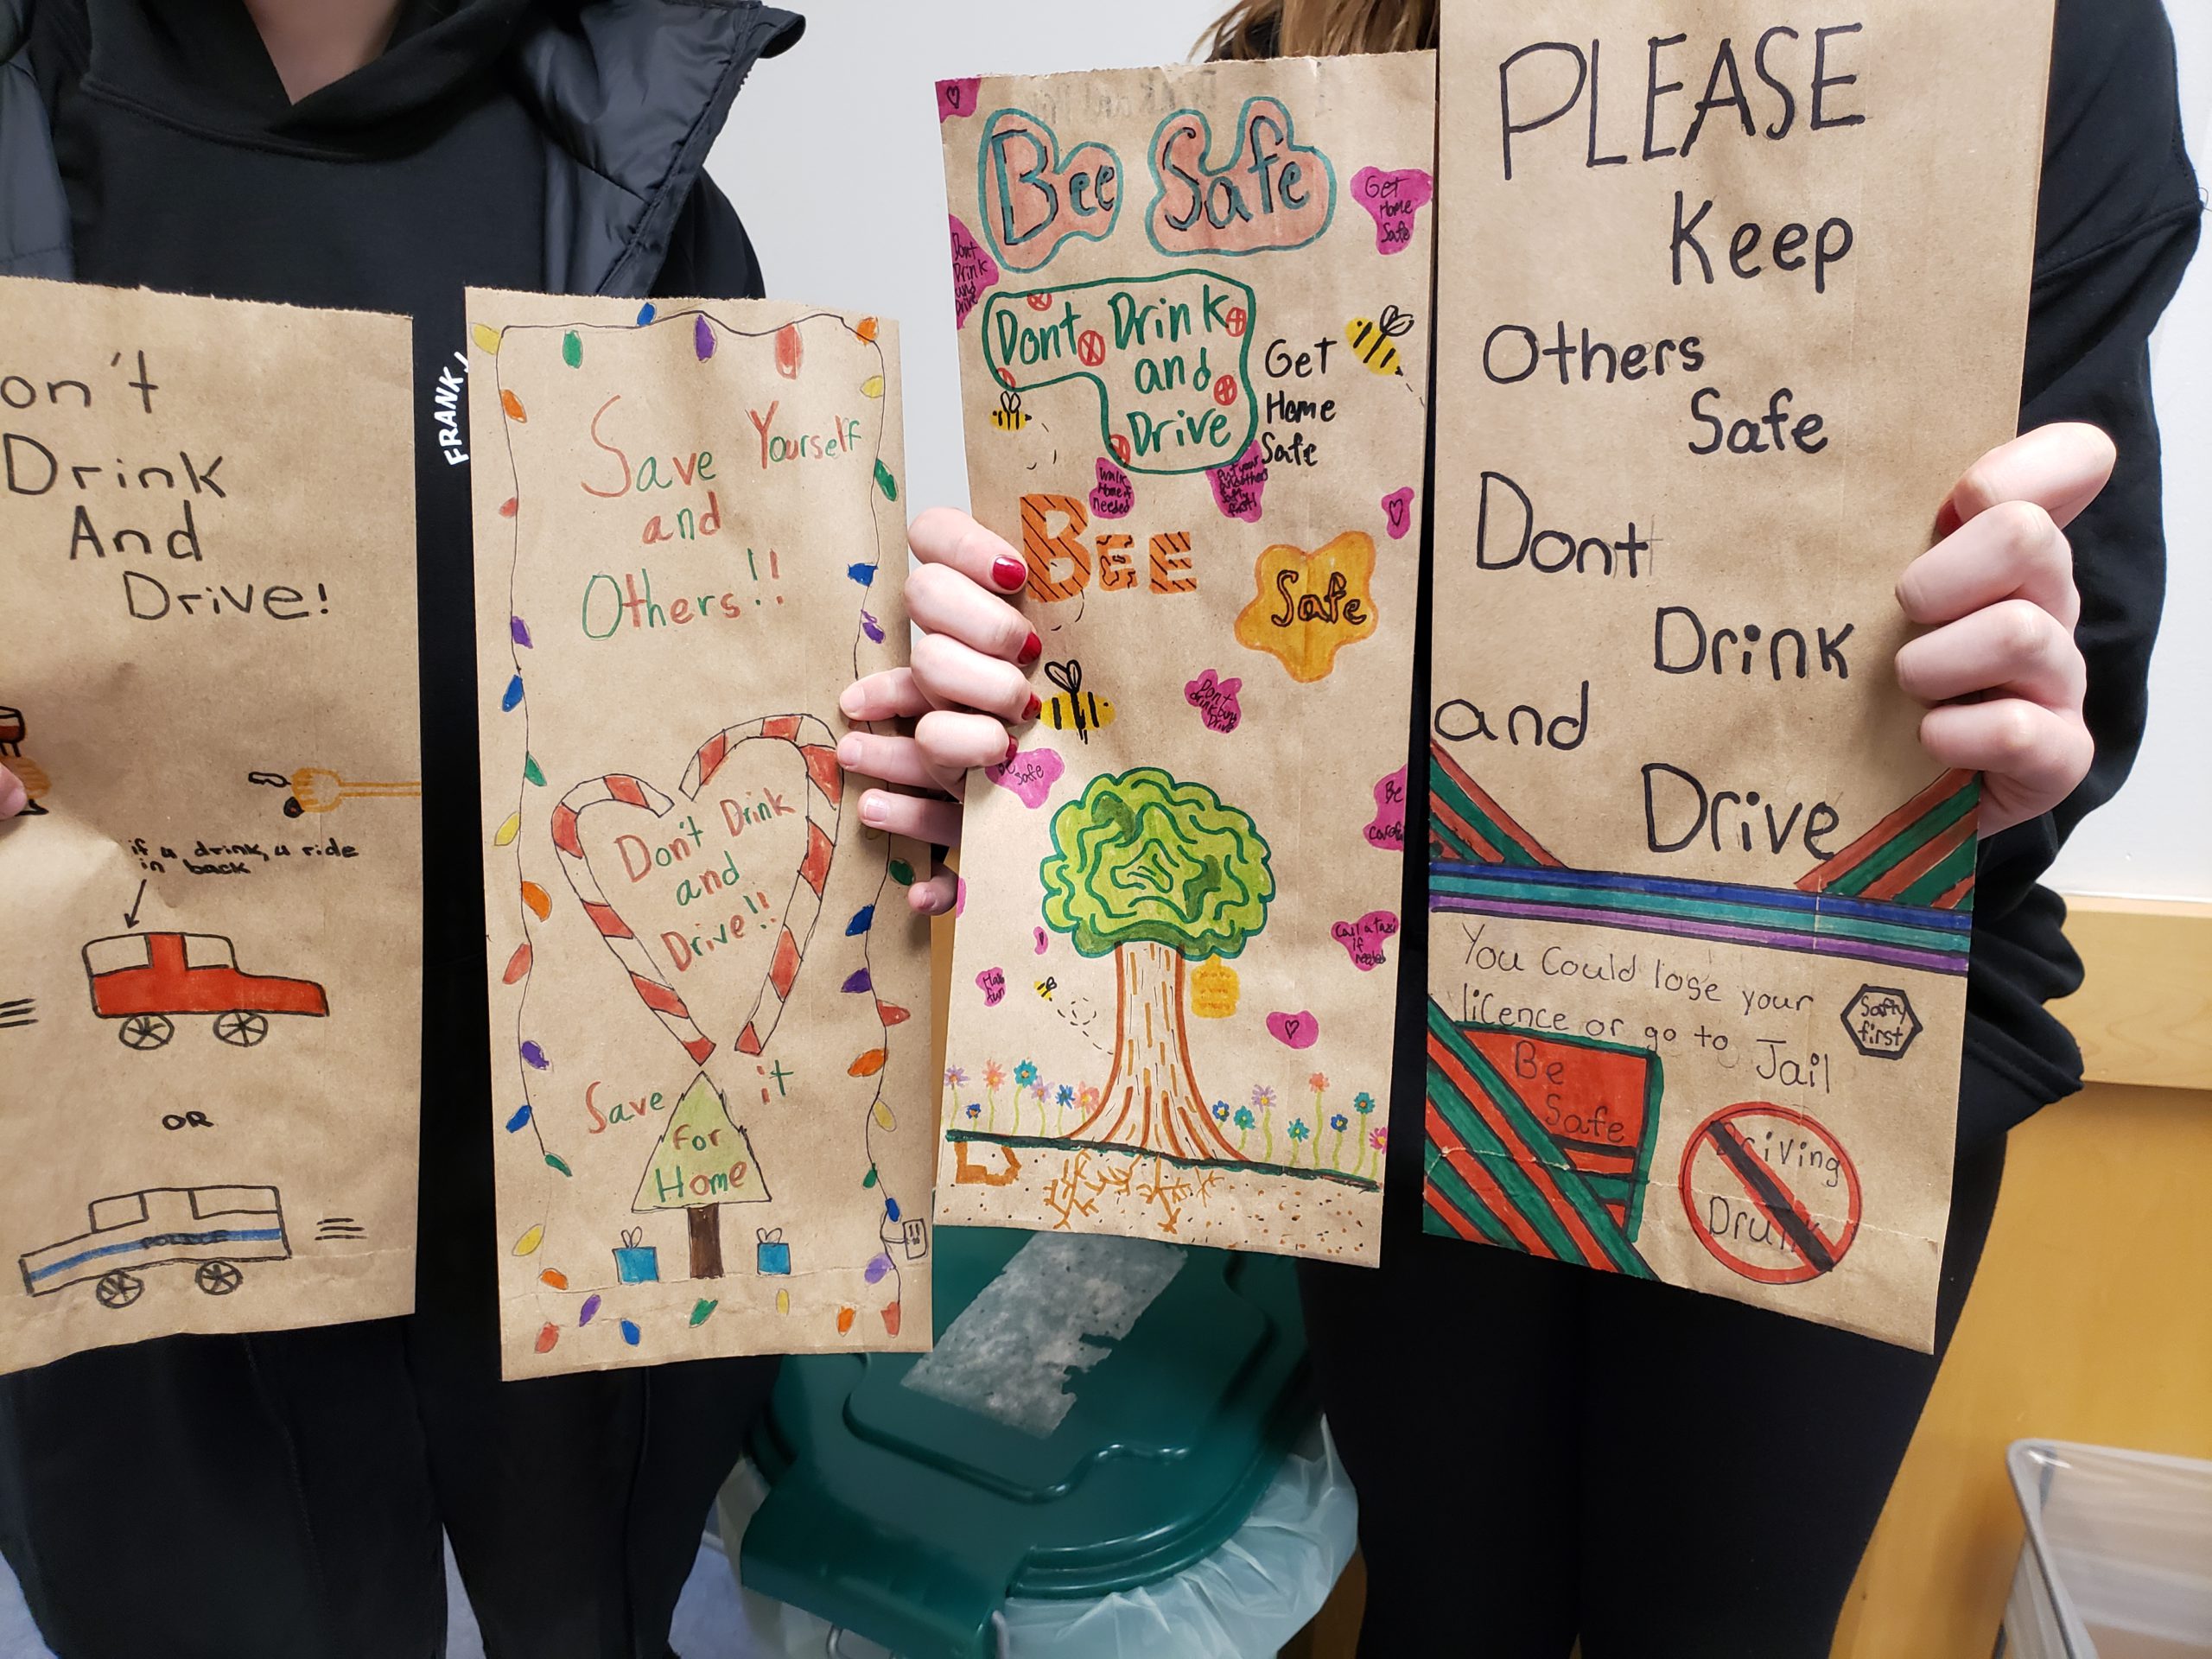 on't
Drink
And
Drive!
if u drink, u ride
in back
OR
POLICE
FRANK
Save Yourself
and
Others!!
Don't Drink
and
Drive!!
Save it
For
Home
Bee Safe
Dont
Drink
and
Drive
Get
Home
Safe
Dont Drink
and
Drive
Get
Home
Safe
Walk
Home if
needed
BEE
Safe
Dont
Drive
Be
Safe
Be
Call a taxi
if
needed
fun
PLEASE
Keep
Others
Safe
Dont
Drink
and
Drive
You Could lose your
licence or go to Jail
Safty
first
Be
Safe
Driving
Drunk